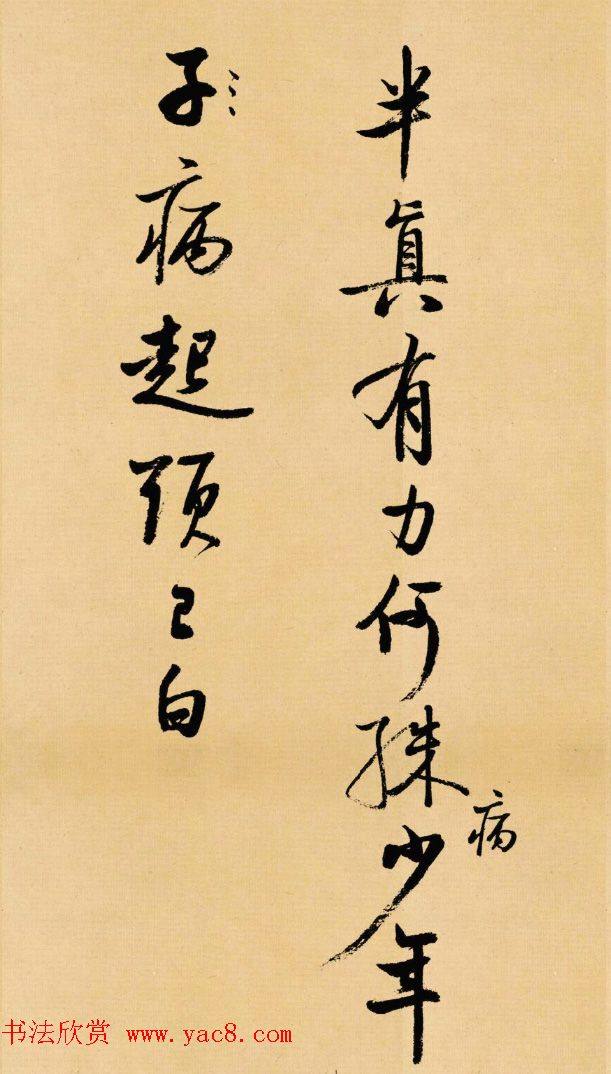 半眞有力何殊病少年
子病起頭已白
书法欣赏 www.yac8.com